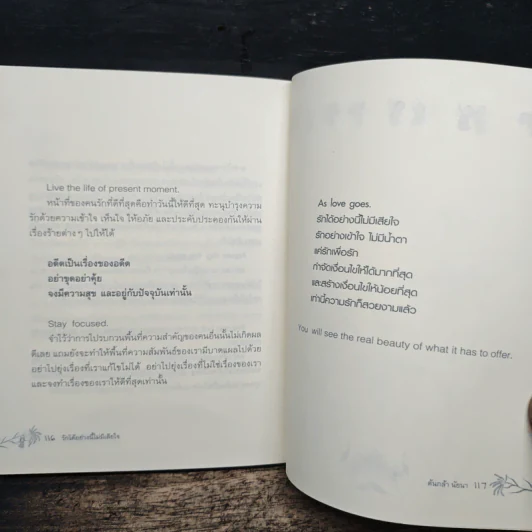 Live the life of present moment.
หน้าที่ของคนรักที่ดีที่สุดคือทำวันนี้ให้ดีที่สุด ทะนุบำรุงความ
รักด้วยความเข้าใจ เห็นใจ ให้อภัย และประคับประคองกันให้ผ่าน
เรื่องร้ายต่างๆ ไปให้ได้
อดีตเป็นเรื่องของอดีต
อย่าขุดอย่าคุ้ย
จงมีความสุข และอยู่กับปัจจุบันเท่านั้น
Stay focused.
จำไว้ว่าการไปรบกวนพื้นที่ความสำคัญของคนอื่นนั้นไม่เกิดผล
ดีเลย แถมยังจะทำให้พื้นที่ความสัมพันธ์ของเรามีบาดแผลไปด้วย
อย่าไปยุ่งเรื่องที่เราแก้ไขไม่ได้ อย่าไปยุ่งเรื่องที่ไม่ใช่เรื่องของเรา
และจงทำเรื่องของเราให้ดีที่สุดเท่านั้น
116 รักได้อย่างนี้ไม่มีเสียใจ
As love goes.
รักได้อย่างนี้ไม่มีเสียใจ
รักอย่างเข้าใจ ไม่มีน้ำตา
แค่รักเพื่อรัก
กำจัดเงื่อนไขให้ได้มากที่สุด
และสร้างเงื่อนไขให้น้อยที่สุด
เท่านี้ความรักก็สวยงามแล้ว
You will see the real beauty of what it has to offer.
ต้นกล้า นัยนา 117